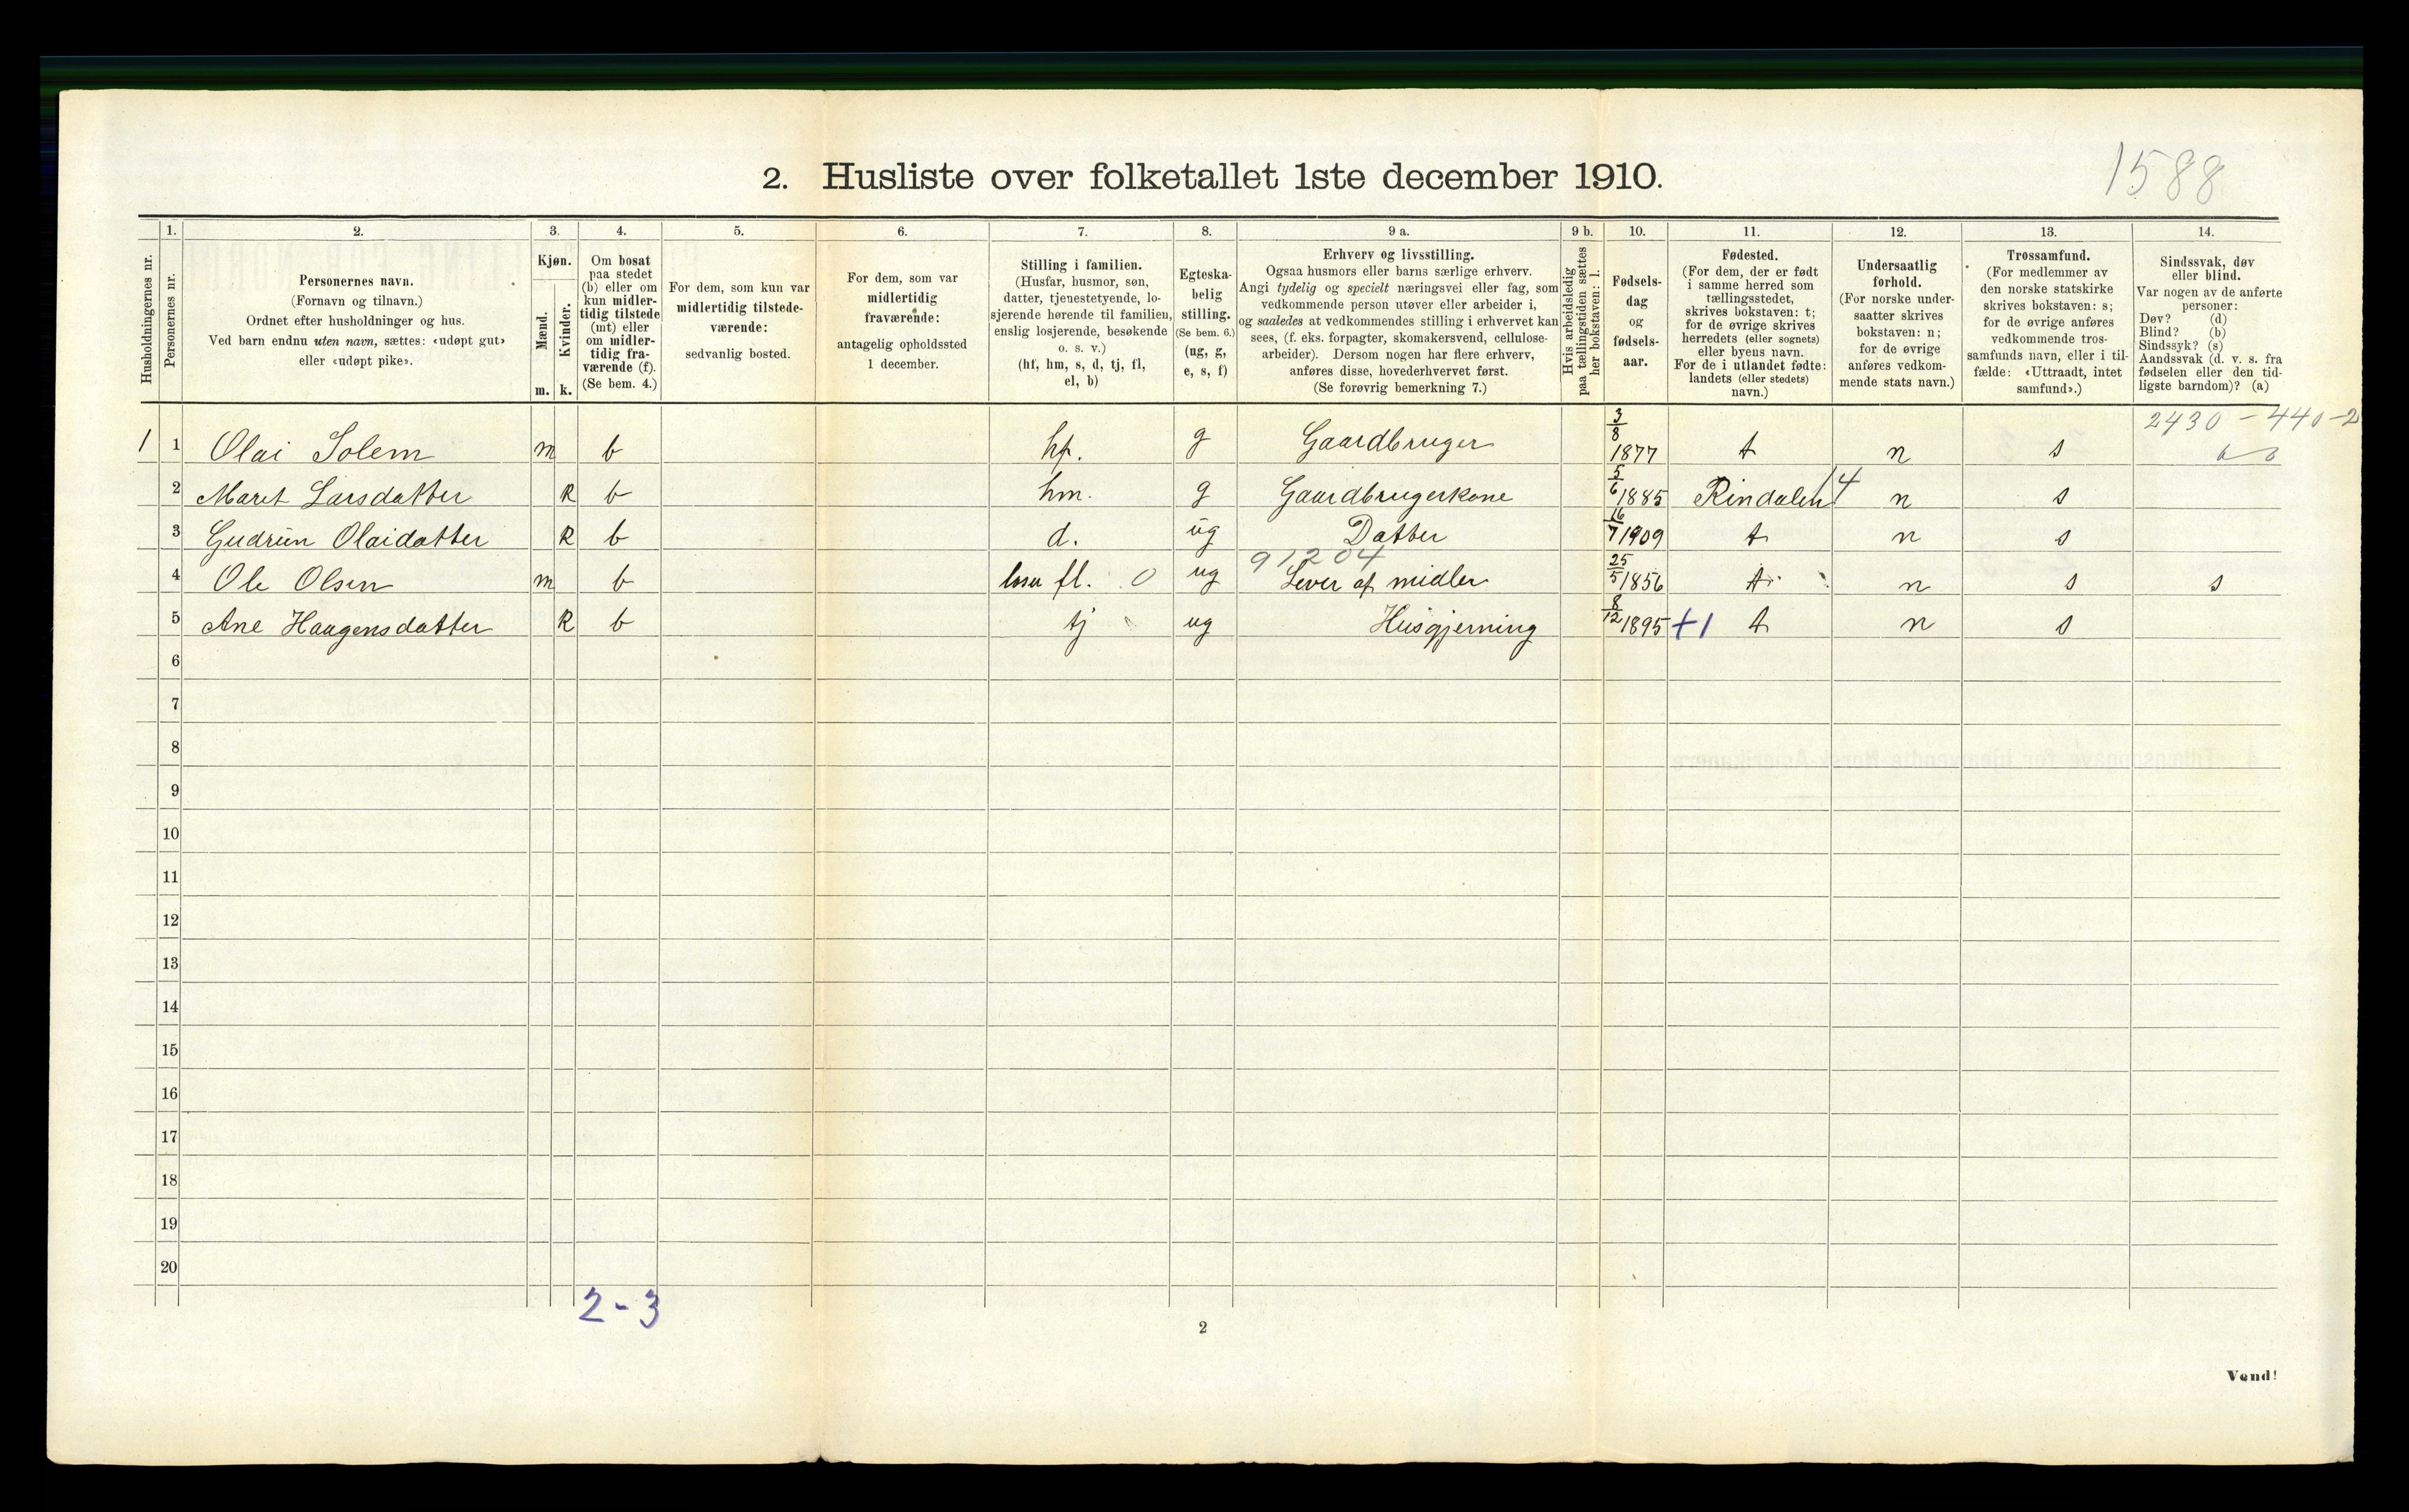 1588
2. Husliste over folketallet 1ste december 1910.
Husholdningernes nr.
1.
Personernes nr.
2.
Personernes navn.
(Fornavn og tilnavn.)
Ordnet efter husholdninger og hus.
Ved barn endnu uten navn, sættes: «udøpt gut»
eller «udøpt pike».
3.
Kjøn.
Mænd.
Kvinder.
m. k.
4.
Om bosat
paa stedet
(b) eller om
kun midler-
tidig tilstede
(mt) eller
om midler-
tidig fra-
værende (f).
(Se bem. 4.)
5.
For dem, som kun var
midlertidig tilstede-
værende:
sedvanlig bosted.
6.
For dem, som var
midlertidig
fraværende:
antagelig opholdssted
1 december.
7.
Stilling i familien.
(Husfar, husmor, søn,
datter, tjenestetyende, lo-
sjerende hørende til familien,
enslig losjerende, besøkende
o. s. v.)
(hf, hm, s, d, tj, fl,
el, b)
8.
Egteska-
belig
stilling.
(Se bem. 6.)
(ug, g,
e, s, f)
9 a.
Erhverv og livsstilling.
Ogsaa husmors eller barns særlige erhverv.
Angi tydelig og specielt næringsvei eller fag, som
vedkommende person utøver eller arbeider i,
og saaledes at vedkommendes stilling i erhvervet kan
sees, (f. eks. forpagter, skomakersvend, cellulose-
arbeider). Dersom nogen har flere erhverv,
anføres disse, hovederhvervet først.
(Se forøvrig bemerkning 7.)
9 b.
Hvis arbeidsledig
paa tællingstiden sættes
her bokstaven: l.
10.
Fødsels-
dag
og
fødsels-
aar.
11.
Fødested.
(For dem, der er født
i samme herred som
tællingsstedet,
skrives bokstaven: t;
for de øvrige skrives
herredets (eller sognets)
eller byens navn.
For de i utlandet fødte:
landets (eller stedets)
navn.)
12.
Undersaatlig
forhold.
(For norske under-
saatter skrives
bokstaven: n;
for de øvrige
anføres vedkom-
mende stats navn.)
13.
Trossamfund.
(For medlemmer av
den norske statskirke
skrives bokstaven: s;
for de øvrige anføres
vedkommende tros-
samfunds navn, eller i til-
fælde: «Uttraadt, intet
samfund».)
14.
Sindssvak, døv
eller blind.
Var nogen av de anførte
personer:
Døv? (d)
Blind? (b)
Sindssyk? (s)
Aandssvak (d. v. s. fra
fødselen eller den tid-
ligste barndom)? (a)
2430-440-2
1 1 Olai Solem m b hf. g Gaardbruger 3/8 1877 t n s
2 Maret Larsdatter k b hm. g Gaardbrugerkone 5/6 1885 Rindalen 14 n s
3 Gudrun Olaidatter k b d. ug Datter 16/7 1909 t n s
91204
4 Ole Olsen m b fl. 0 ug Lever af midler 25/5 1856 t n s s
5 Ane Haagensdatter k b tj ug Husgjerning 8/12 1895 +1 t n s
6
7
8
9
10
11
12
13
14
15
16
17
18
19
20
2-3
2
Vend!